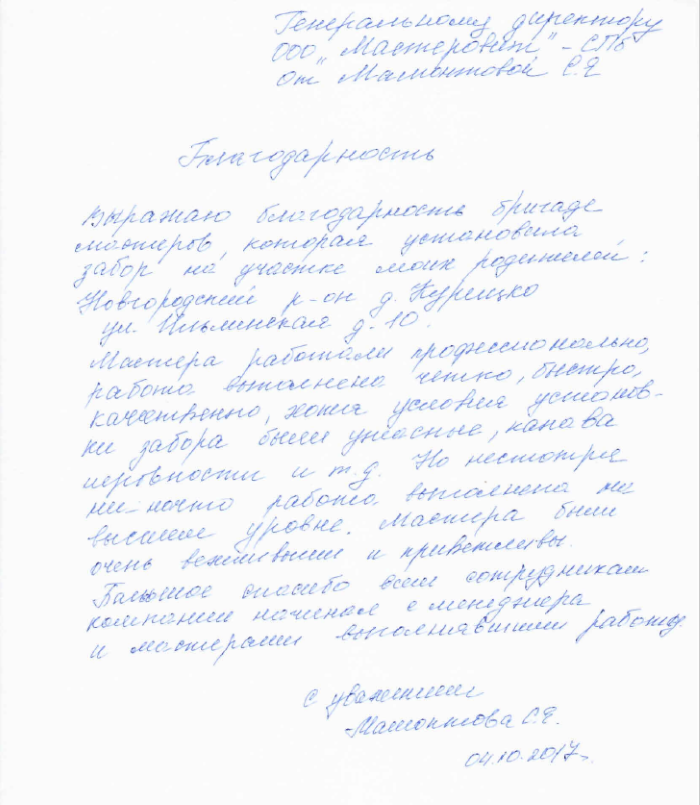 Генеральному директору
ООО "Мастеровит" - СПб
от Мамонтовой С.Е
Благодарность
Выражаю благодарность бригаде
мастеров, которая установила
забор на участке моих родителей:
Новгородский р-он д. Курицко
ул. Ильинская д. 10.
Мастера работали профессионально,
работа выполнена четко, быстро,
качественно, хотя условия установ-
ки забора были ужасные, канава
неровности и т.д. Но несмотря
ни на что работа выполнена на
высшем уровне. Мастера были
очень вежливыми и приветливы.
Большое спасибо всем сотрудникам
компании начиная с менеджера
и мастерами выполнявшими работу.
с уважением
Мамонтова С.Е.
04.10.2017г.